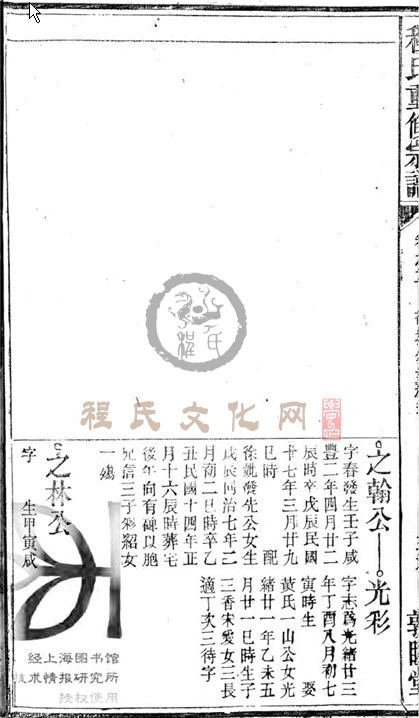 程氏重修宗譜
之翰公
字春發生壬子咸
豐二年四月廿二
辰時卒戊辰民國
十七年三月廿九
巳時 配
徐氏發先公女生
戊辰同治七年二
月初二巳時卒乙
丑民國十四年正
月十六辰時葬宅
後午向有碑以胞
兄信三子彩紹女
一殤
光彩
字志爲光緒廿三
年丁酉八月初七
寅時生 娶
黃氏一山公女光
緒廿一年乙未五
月廿一巳時生子
三香宋愛女三長
適丁次三待字
之林公
字 生甲寅咸
程氏文化网
经上海图书馆
技术情报研究所
授权使用